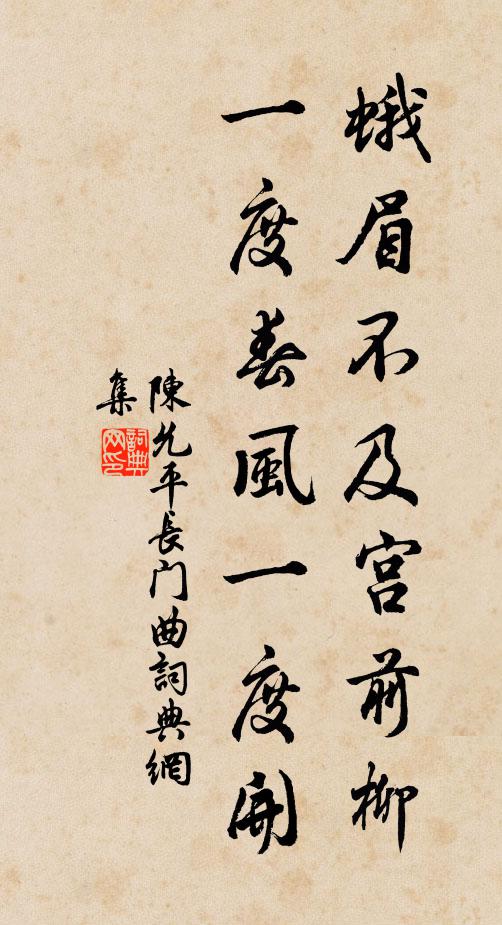 蛾眉不及宮前柳
一度春風一度開
陳允平長門曲詞典網
集
詞典網印